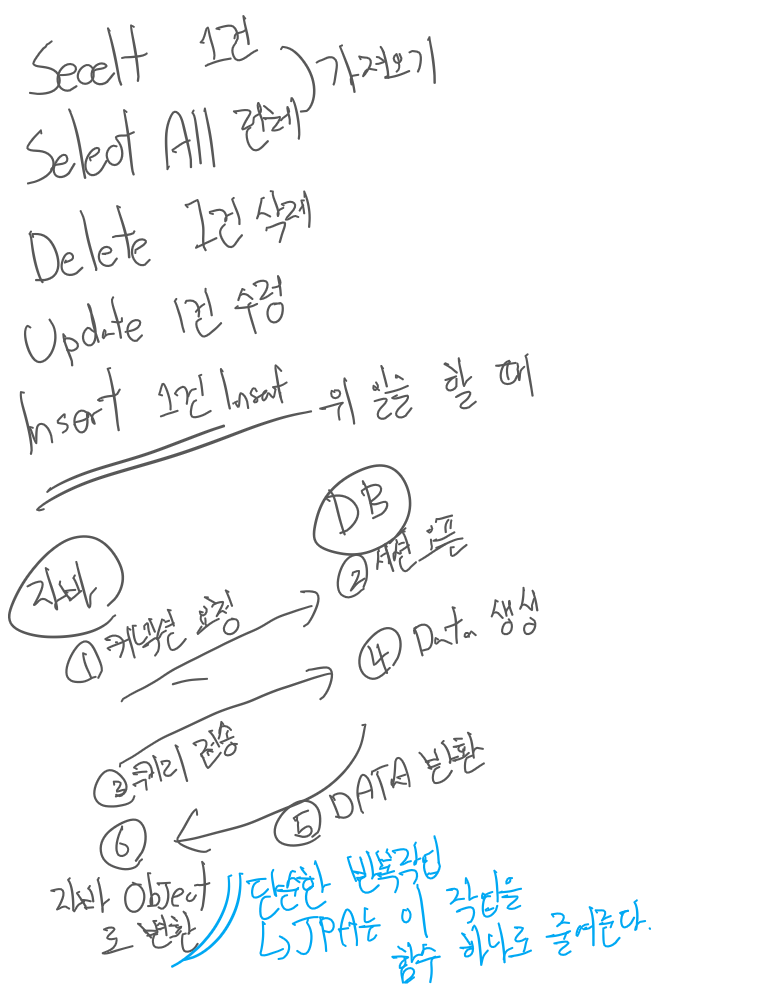 Seoelt 1건
가져오기
Select All 전체
Delete 1건 삭제
Update 1건 수정
Insert 1건 Insert 위 일을 할 때
자바
DB
① 커넥션 요청
② 세션 오픈
③ 쿼리 전송
④ Data 생성
⑤ DATA 반환
⑥
자바 Object
로 변환
단순한 반복작업
↳ JPA는 이 작업을
함수 하나로 줄여준다.